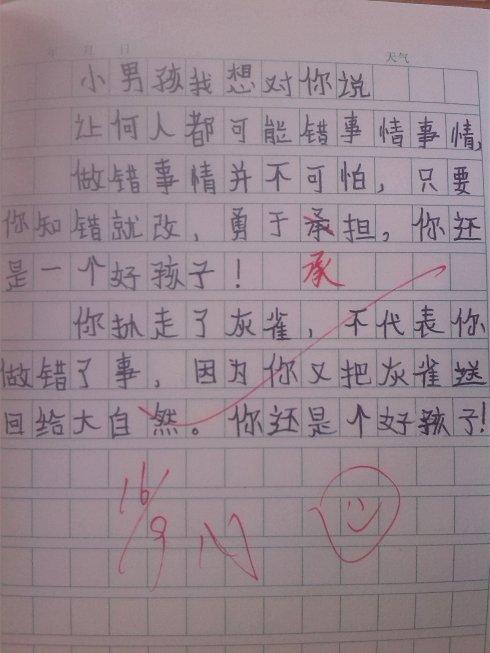 年 月 日 天气
小男孩我想对你说
让何人都可能错事情事情,
做错事情并不可怕，只要
你知错就改，勇于承担，你还
是一个好孩子！ 承
你抓走了灰雀，不代表你
做错了事，因为你又把灰雀送
回给大自然。你还是个好孩子!
16/9